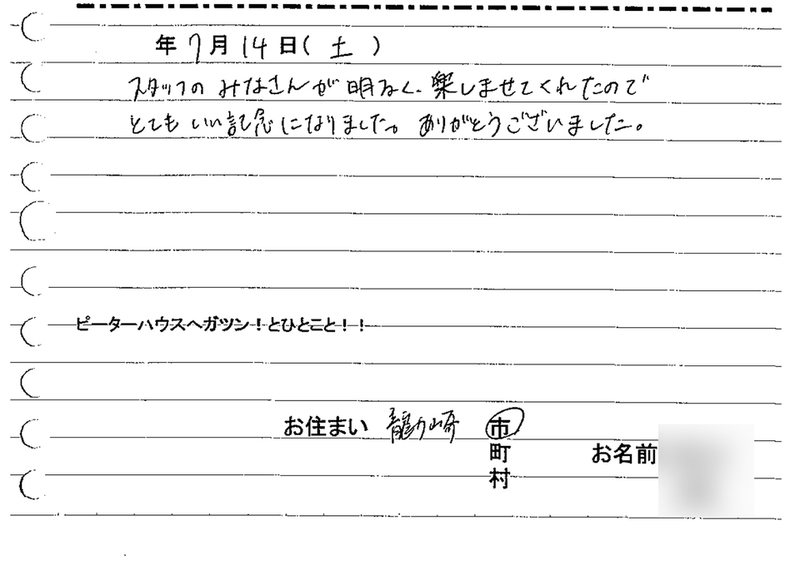 年 7月 14日( 土 )
スタッフの みなさんが 明るく、楽しませてくれたので
とても いい記念になりました。 ありがとうございました。
ピーターハウスへガツン！とひとこと！！
お住まい 龍ヶ崎 市
町 お名前
村